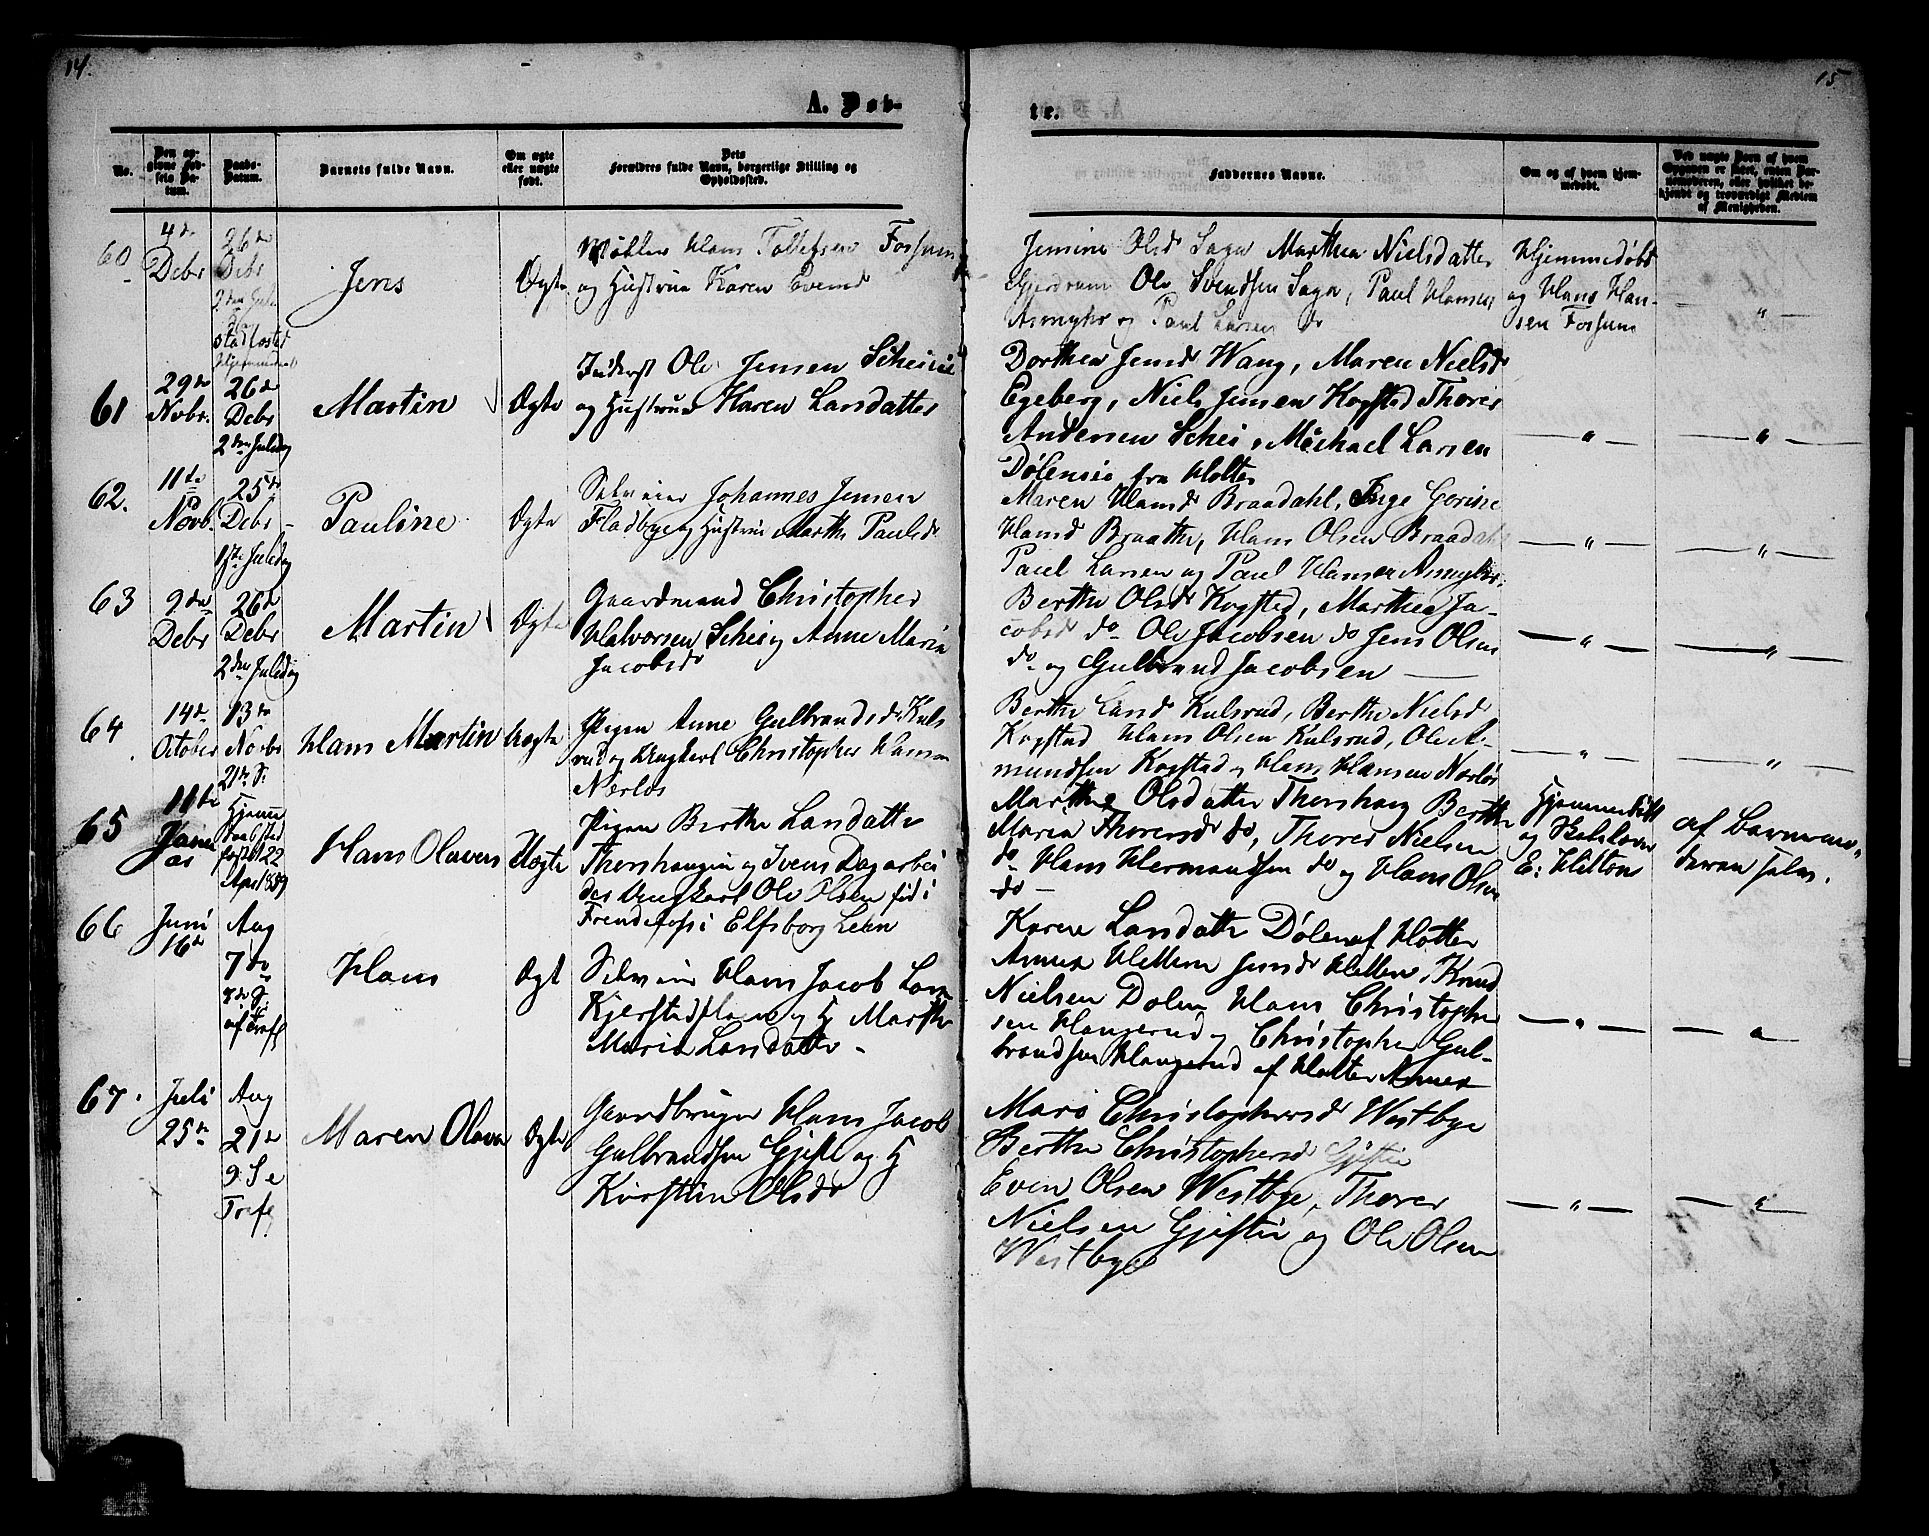 14.
15
A. Døb-
te.
No.
Den op-
givne Fød-
sels Da-
tum.
Daabs-
Datum.
Barnets fulde Navn.
Om ægte
eller uægte
født.
Dets
Forældres fulde Navn, borgerlige Stilling og
Opholdssted.
Faddernes Navne.
Om og af hvem hjem-
medøbt.
Ved uægte Børn af hvem
Opgaven er skeet, enten For-
af Menigheden.
60
4de
Debr
26de
Debr
2den Jule
dag
stadfæstet
Jens
Ægte
Møller Hans Tollefsen Fossum
og Hustrue Karen Evensd
Jensine Olsd Saga Marthea Nielsdatter
Gjerdrum Ole Svendsen Saga, Paul Hansen
Asmyhr og Paul Larsen do
Hjemmedøbt
og Hans Han-
sen Fossum
— " —
61
29de
Novbr.
26de
Debr
2den Juledag
Martin
Ægte
Inderst Ole Jensen Scheie
og Hustrue Karen Larsdatter
Dorthea Jensd Wang, Maren Nielsd
Egeberg, Niels Jensen Kogstad Thorer
Andersen Schei, Michael Larsen
Dølen fra Holter
— " —
— " —
62.
11te
Novb.
25de
Debr
1ste Juledag
Pauline
Ægte
Selveier Johannes Jensen
Fladbye og Hustrue Marthe Paulsd
Maren Hansd Braadahl, Inge Gorine
Hansd Braathe, Hans Olsen Braadahl
Paul Larsen og Paul Hansen Asmyhr.
— " —
— " —
63
9de
Debr
26de
Debr
2den Juledag
Martin
Ægte
Gaardmand Christopher
Halvorsen Schei og Anne Maria
Jacobsd
Berthe Olsd Kogsted, Marthea Ja-
cobsd do Ole Jacobsen do Jens Olsen
do og Gulbrand Jacobsen —
— " —
— " —
64
14de
October
13de
Novbr
21de S.
Hans Martin
Uægte
Pigen Anne Gulbrandsd Kuls
rud og Ungkarl Christopher Hansen
Nerløs
Berthe Larsd Kulsrud, Berthe Nielsd
Kogstad Hans Olsen Kulsrud, Ole A-
mundsen Kogstad og Hans Hansen Nerløs
— " —
— " —
65
11te
Janu
ar
Hjemme
daab stad
fæstet 22
April 1859
Hans Olavus
Uægte
Pigen Berthe Larsdatter
Thorshaugen og Svensk Dagarbei
der Ungkarl Ole Olsen fød i
Elfsborg Lehn
Marthe Olsdatter Thorshaug Berthe
Maria Thorersd do, Thorer Nielsen
do Hans Hermandsen do og Hans Olsen
do —
Hjemmedøbt
og Skolelærer
E: Hilton
af Barnemo-
deren selv.
66
Juni
16de
Aug
7de
7de S.
af Trefg
Hans
Ægt
Selveier Hans Jacob Lars
Kjerstad og H Marthe
Maria Larsdatter —
Karen Larsdatter Dølen af Holter
Annex Helene Jensd Knud
Nielsen Dølen Hans Christophe
sen Haugerud og Christopher Gul-
brandsen Haugerud af Holter Annex
— " —
— " —
67.
Juli
25de
Aug
21de
9. S e
Trefg
Maren Olava
Ægte
Gaardbruger Hans Jacob
Gulbrandsen Gjestie og H
Kirstine Olsdr
Mari Christophersd Westbye
Berthe Christophersd Gjestie
Even Olsen Westbye, Thorer
Nielsen Gjestie og Ole Olsen
Westbye
— " —
— " —